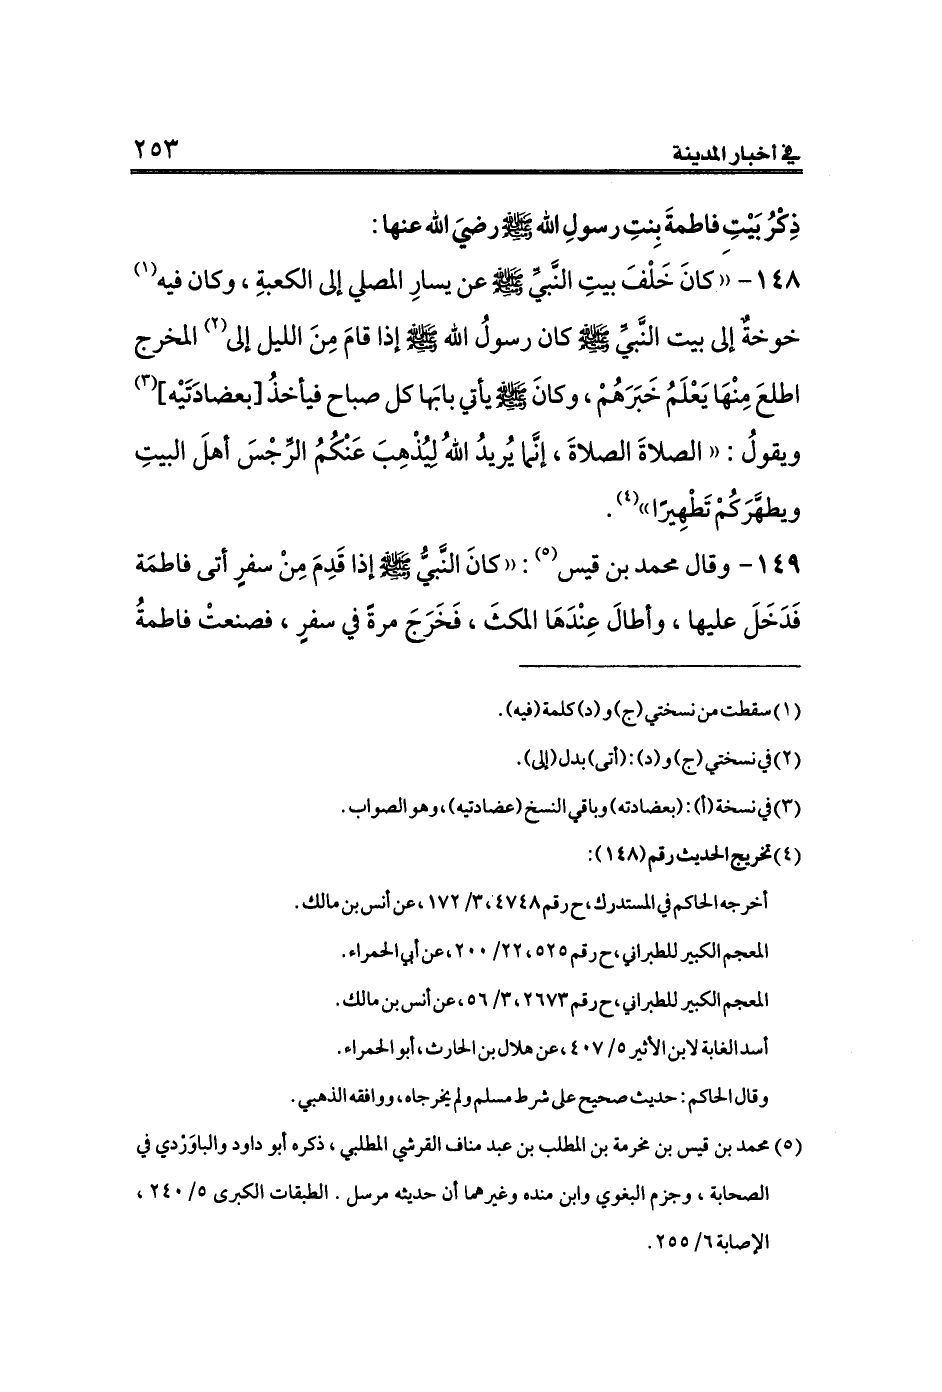 في أخبار المدينة ٢٥٣
ذِكْرُ بَيْتِ فاطمةَ بِنتِ رسولِ الله ﷺ رضيَ الله عنها :
١٤٨ – « كانَ خَلْفَ بيتِ النَّبيِّ ﷺ عن يسارِ المصلي إلى الكعبةِ ، وكان فيه(١)
خوخةٌ إلى بيت النَّبيِّ ﷺ كان رسولُ الله ﷺ إذا قامَ مِنَ الليل إلى(٢) المخرج
اطلعَ مِنْهَا يَعْلَمُ خَبَرَهُمْ ، وكانَ ﷺ يأتي بابَها كل صباح فيأخذُ [بعضادَتَيْه](٣)
ويقولُ : « الصلاةَ الصلاةَ ، إنَّما يُريدُ اللهُ لِيُذْهِبَ عَنْكُمُ الرِّجْسَ أهلَ البيتِ
ويطهَّرَكُمْ تَطْهِيرًا»(٤) .
١٤٩ – وقال محمد بن قيس(٥) : « كانَ النَّبيُّ ﷺ إذا قَدِمَ مِنْ سفرٍ أتى فاطمَة
فَدَخَلَ عليها ، وأطالَ عِنْدَهَا المكثَ ، فَخَرَجَ مرةً في سفرٍ ، فصنعتْ فاطمةُ
(١) سقطت من نسختي (ج) و (د) كلمة (فيه).
(٢) في نسختي (ج) و (د): (أتى) بدل (إلى).
(٣) في نسخة (أ): (بعضادته) وباقي النسخ (عضادتيه)، وهو الصواب.
(٤) تخريج الحديث رقم (١٤٨):
أخرجه الحاكم في المستدرك، ح رقم ٤٧٤٨، ٣/ ١٧٢، عن أنس بن مالك.
المعجم الكبير للطبراني، ح رقم ٥٢٥، ٢٢/ ٢٠٠، عن أبي الحمراء.
المعجم الكبير للطبراني، ح رقم ٢٦٧٣، ٣/ ٥٦، عن أنس بن مالك.
أسد الغابة لابن الأثير ٥/ ٤٠٧، عن هلال بن الحارث، أبو الحمراء.
وقال الحاكم: حديث صحيح على شرط مسلم ولم يخرجاه، ووافقه الذهبي.
(٥) محمد بن قيس بن مخرمة بن المطلب بن عبد مناف القرشي المطلبي ، ذكره أبو داود والباوَرْدي في
الصحابة ، وجزم البغوي وابن منده وغيرهما أن حديثه مرسل . الطبقات الكبرى ٥/ ٢٤٠ ،
الإصابة ٦/ ٢٥٥ .